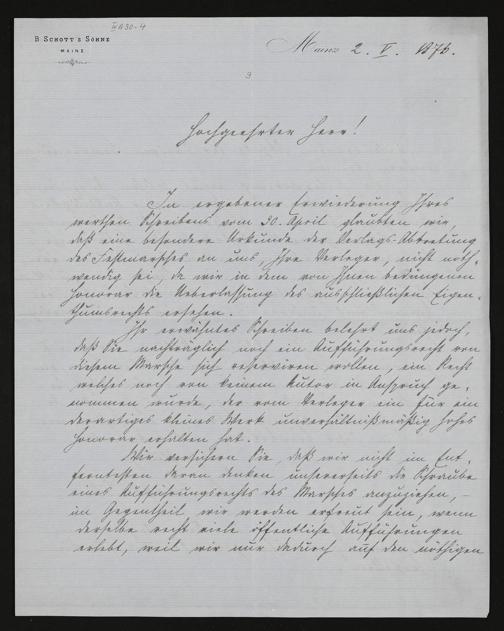 III A 30-4
B. SCHOTT'S SÖHNE
MAINZ
Mainz 2. V. 1876.
3
Hochgeehrter Herr!
In ergebener Erwiederung Ihres
werthen Schreibens vom 30. April glaubten wir,
daß eine besondere Urkunde der Verlags-Abtretung
des Festmarsches an uns, Ihre Verleger, nicht noth-
wendig sei, da wir in dem von Ihnen bedungenen
Honorar die Ueberlassung des ausschließlichen Eigen-
thumsrechts ersehen.
Ihr erwähntes Schreiben belehrt uns jedoch,
daß Sie nachträglich noch ein Aufführungsrecht von
diesem Marsche sich reserviren wollen, ein Recht
welches noch von keinem Autor in Anspruch ge-
nommen wurde, der vom Verleger ein für ein
derartiges kleines Werk unverhältnißmäßig hohes
Honorar erhalten hat.
Wir versichern Sie, daß wir nicht im Ent-
ferntesten daran denken unsererseits die Schraube
eines Aufführungsrechts des Marsches anzuziehen, –
im Gegentheil wir werden erfreut sein, wenn
derselbe recht viele öffentliche Aufführungen
erlebt, weil wir nur dadurch auf den nöthigen